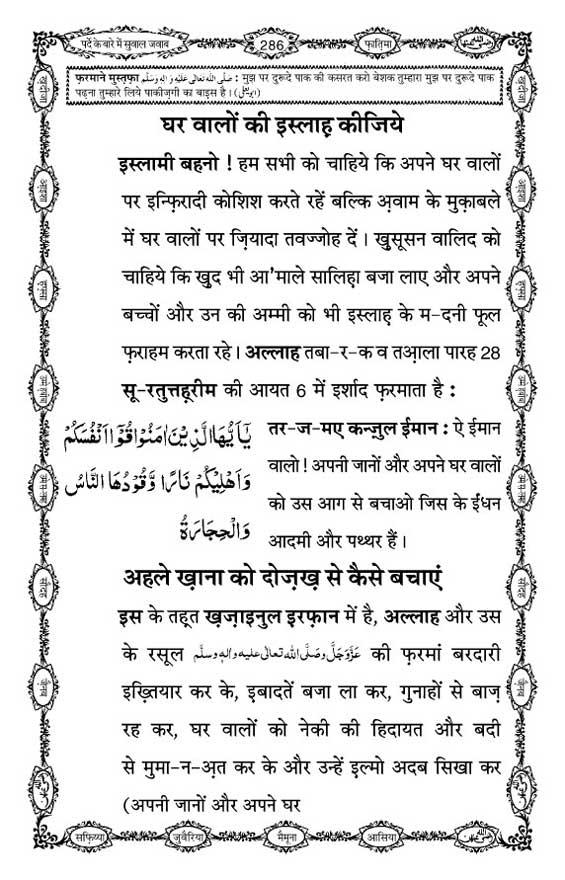 पर्दे के बारे में सुवाल जवाब 286 फ़ातिमा
फ़रमाने मुस्तफ़ा صلى الله تعالى عليه واله وسلم : मुझ पर दुरूदे पाक की कसरत करो बेशक तुम्हारा मुझ पर दुरूदे पाक
पढ़ना तुम्हारे लिये पाकीज़गी का बाइस है। (ابو یعلی)
घर वालों की इस्लाह कीजिये
इस्लामी बहनो ! हम सभी को चाहिये कि अपने घर वालों
पर इन्फ़िरादी कोशिश करते रहें बल्कि अ़वाम के मुक़ाबले
में घर वालों पर ज़ियादा तवज्जोह दें। ख़ुसूसन वालिद को
चाहिये कि ख़ुद भी आ'माले सालिह़ा बजा लाए और अपने
बच्चों और उन की अम्मी को भी इस्लाह के म-दनी फूल
फ़राहम करता रहे। अल्लाह तबा-र-क व तआ़ला पारह 28
सू-रतुत्तह़रीम की आयत 6 में इर्शाद फ़रमाता है :
يٰۤاَيُّهَا الَّذِيْنَ اٰمَنُوْا قُوْۤا اَنْفُسَكُمْ
وَ اَهْلِيْكُمْ نَارًا وَّقُوْدُهَا النَّاسُ
وَ الْحِجَارَةُ
तर-ज-मए कन्ज़ुल ईमान : ऐ ईमान
वालो ! अपनी जानों और अपने घर वालों
को उस आग से बचाओ जिस के ईंधन
आदमी और पथ्थर हैं।
अहले ख़ाना को दोज़ख़ से कैसे बचाएं
इस के तह़्त ख़ज़ाइनुल इरफ़ान में है, अल्लाह और उस
के रसूल عَزَّوَجَلَّ وَصَلَّى الله تعالى عليه واله وسلَّم की फ़रमां बरदारी
इख़्तियार कर के, इबादतें बजा ला कर, गुनाहों से बाज़
रह कर, घर वालों को नेकी की हिदायत और बदी
से मुमा-न-अ़त कर के और उन्हें इल्मो अदब सिखा कर
(अपनी जानों और अपने घर
ख़दीजा
आ़इशा
ह़फ़्सा
सौदह
ज़ैनब
सफ़िय्या जुवैरिया मैमूना आसिया